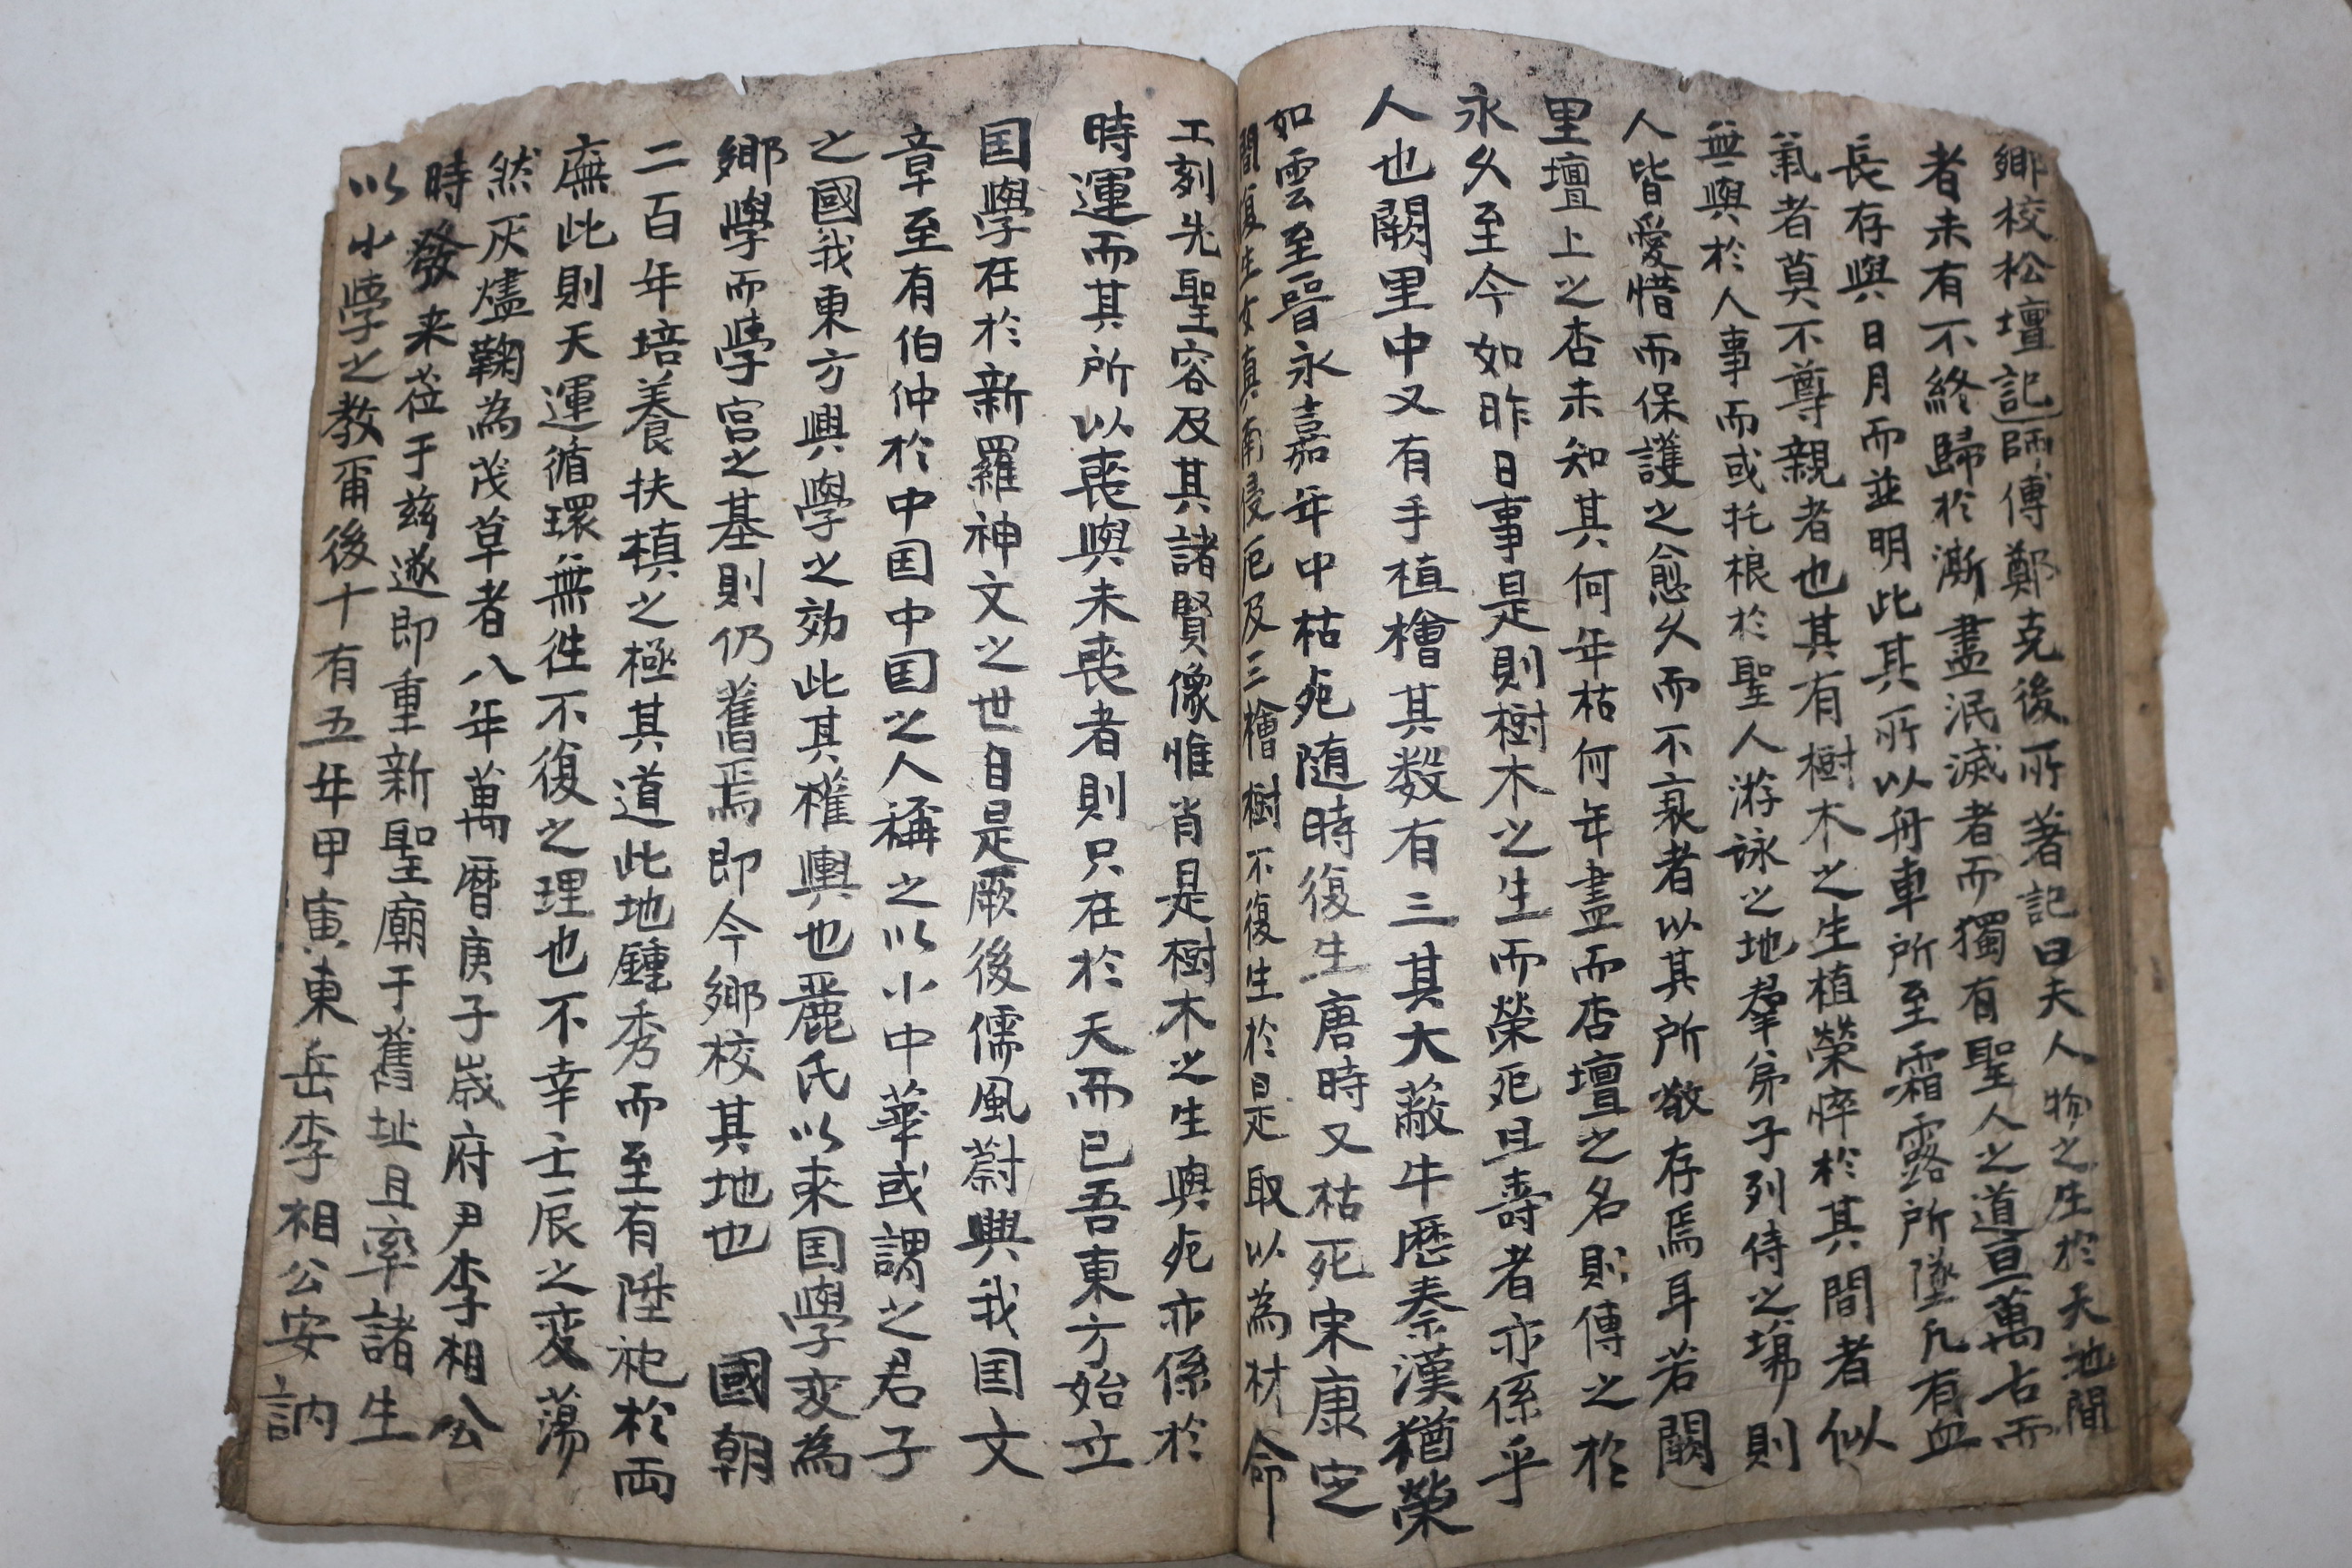 鄉校松壇記師傅鄭克後所著記曰夫人物之生於天地間
者未有不終歸於澌盡泯滅者而獨有聖人之道亘萬古而
長存與日月而並明此其所以舟車所至霜露所墜凡有血
氣者莫不尊親者也其有樹木之生植榮悴於其間者似
無與於人事而或托根於聖人游詠之地羣弟子列侍之場則
人皆愛惜而保護之愈久而不衰者以其所敬存焉耳若闕
里壇上之杏未知其何年枯何年盡而杏壇之名則傳之於
永久至今如昨日事是則樹木之生而榮死且壽者亦係乎
人也闕里中又有手植檜其数有三其大蔽牛歷秦漢猶榮
如雲至晉永嘉年中枯死随時復生唐時又枯死宋康定
間復生女真南侵厄及三檜樹不復生於是取以為材命
工刻先聖容及其諸賢像惟肖是樹木之生與死亦係於
時運而其所以丧與未丧者則只在於天而已吾東方始立
国學在於新羅神文之世自是厥後儒風蔚興我国文
章至有伯仲於中国中国之人稱之以小中華或謂之君子
之國我東方興學之効此其權輿也麗氏以来国學变為
鄉學而學宮之基則仍舊焉即今鄉校其地也 國朝
二百年培養扶植之極其道此地鍾秀而至有陞祀於両
廡此則天運循環無徃不復之理也不幸壬辰之变蕩
然灰燼鞠為茂草者八年萬曆庚子歲府尹李相公
時發来莅于玆遂即重新聖廟于舊址且率諸生
以小學之教甭後十有五年甲寅東岳李相公安訥